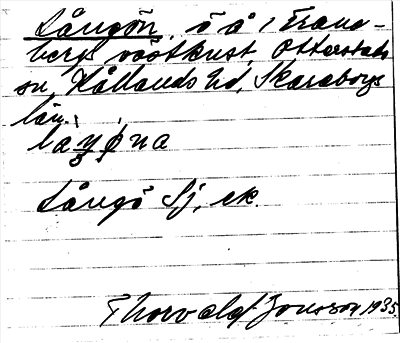 Långön, ö å i Frams-
bergs västkust, Otterstads
sn, Kållands hd, Skaraborgs
län.
Långö Sj. ek.
Thorvald Jonsson 1935.